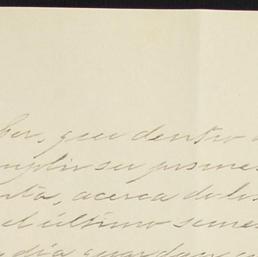 ber, que dentro
cumplir su prome
acerca de los
el último semes
dia